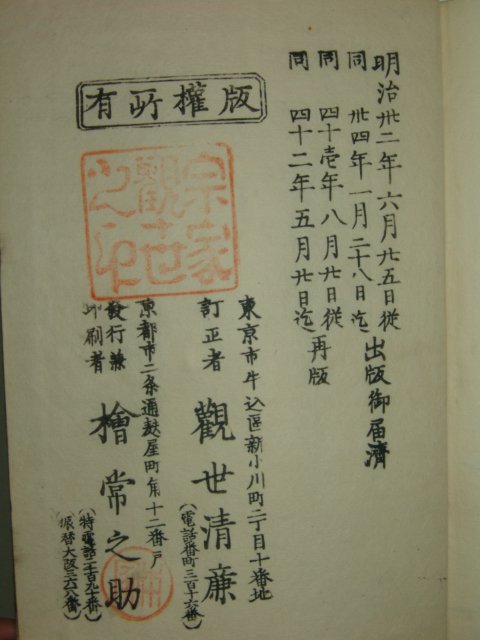 明治卅二年六月廿五日從
同 卅四年一月二十八日迄
出版御届濟
同 四十壱年八月廿日從
同 四十二年五月廿日迄
再版
版權所有
宗家
觀世
之印
東京市牛込區新小川町二丁目十番地
訂正者 觀世清廉
(電話番町三百十六番)
京都市二条通麩屋町角十二番戸
發行兼
印刷者
檜常之助
(特電話二百九十番)
振替大阪三六八番)